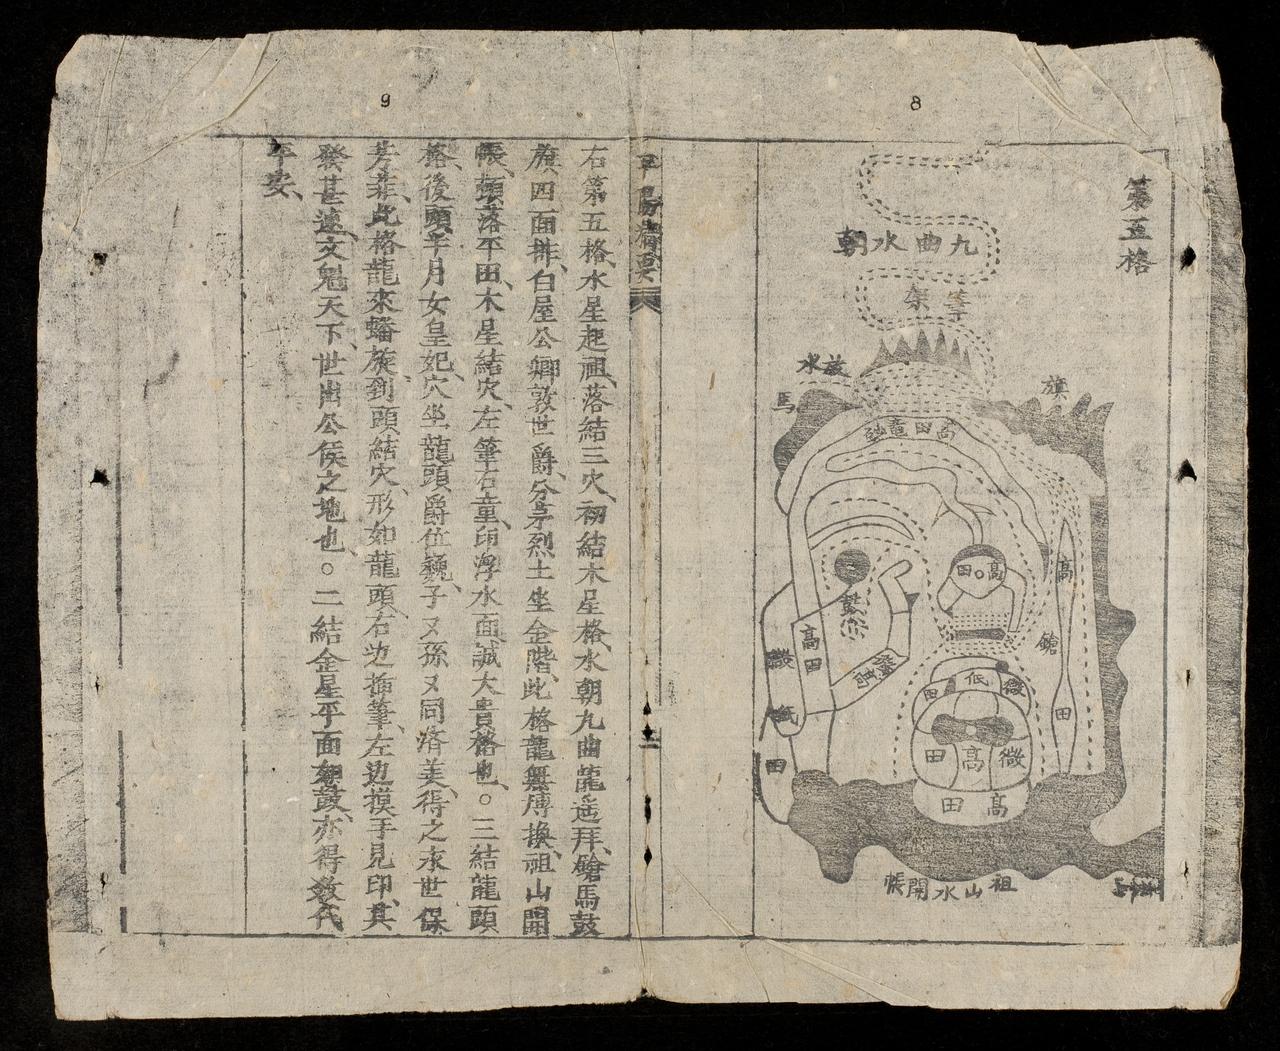 8
第五格
九曲水朝
筆架
旗
放水
馬
高田竜砂
高
鎗
田
高田
鼓
高田
微
低
田
微
低
田
微
高
田
高田
祖山水開帳
平陽精要
9
右第五格水星起祖、落結三穴、初結木星格、水朝九曲龍遥拜、鎗馬鼓
旗四面排、白屋公卿敦世爵、分茅烈土坐金階、此格龍無溥換、祖山開
帳、頓落平田、木星結穴、左筆右童、印浮水面、誠大貴格也、○三結龍頭
格、後頭半月女皇妃、穴坐龍頭爵位巍、子又孫又同濟美、得之永世保
芳菲、此格龍來蟠旋、到頭結穴、形如龍頭、右边插筆、左边摸手見印、其
發甚速、文魁天下、世出公侯之地也、○二結金星平面如鼓、亦得数代
平安、